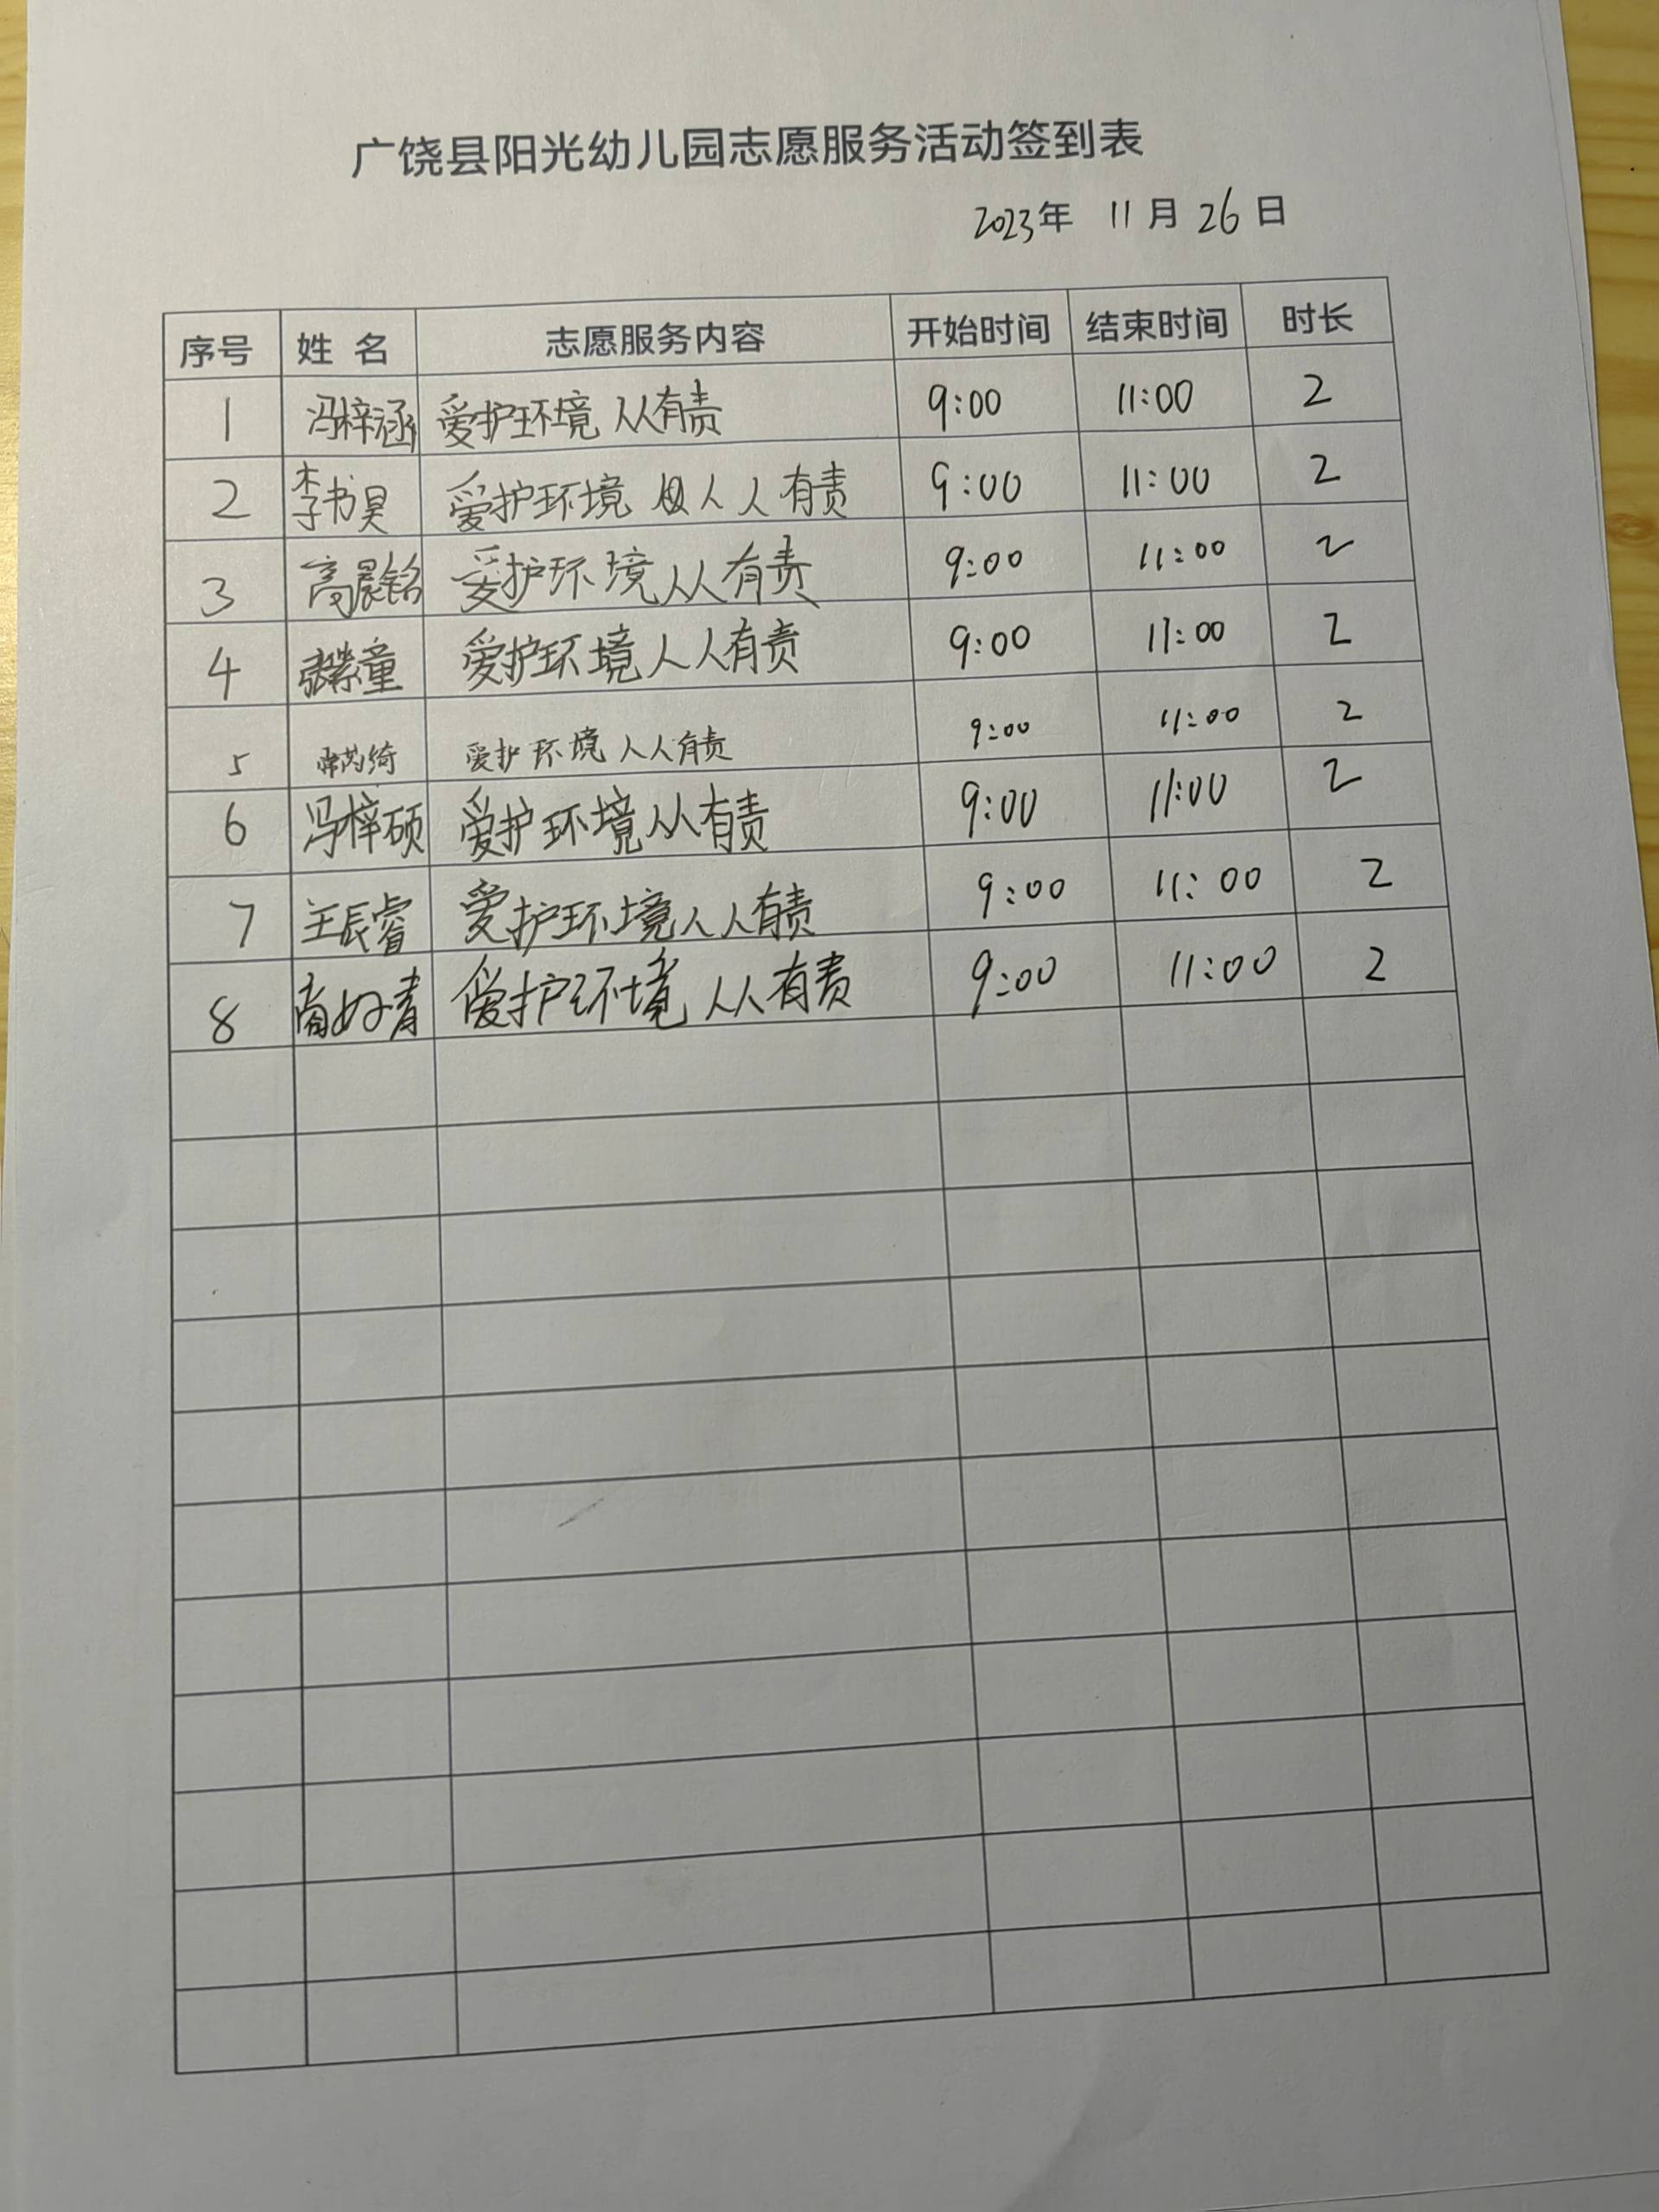 广饶县阳光幼儿园志愿服务活动签到表
2023年 11月26日
序号 姓 名 志愿服务内容 开始时间 结束时间 时长
1 冯梓涵 爱护环境 人人有责 9:00 11:00 2
2 李书昊 爱护环境 人人有责 9:00 11:00 2
3 高晨铭 爱护环境人人有责 9:00 11:00 2
4 张紫童 爱护环境人人有责 9:00 11:00 2
5 爱护环境人人有责 9:00 11:00 2
6 冯梓硕 爱护环境人人有责 9:00 11:00 2
7 王辰睿 爱护环境人人有责 9:00 11:00 2
8 爱护环境 人人有责 9:00 11:00 2